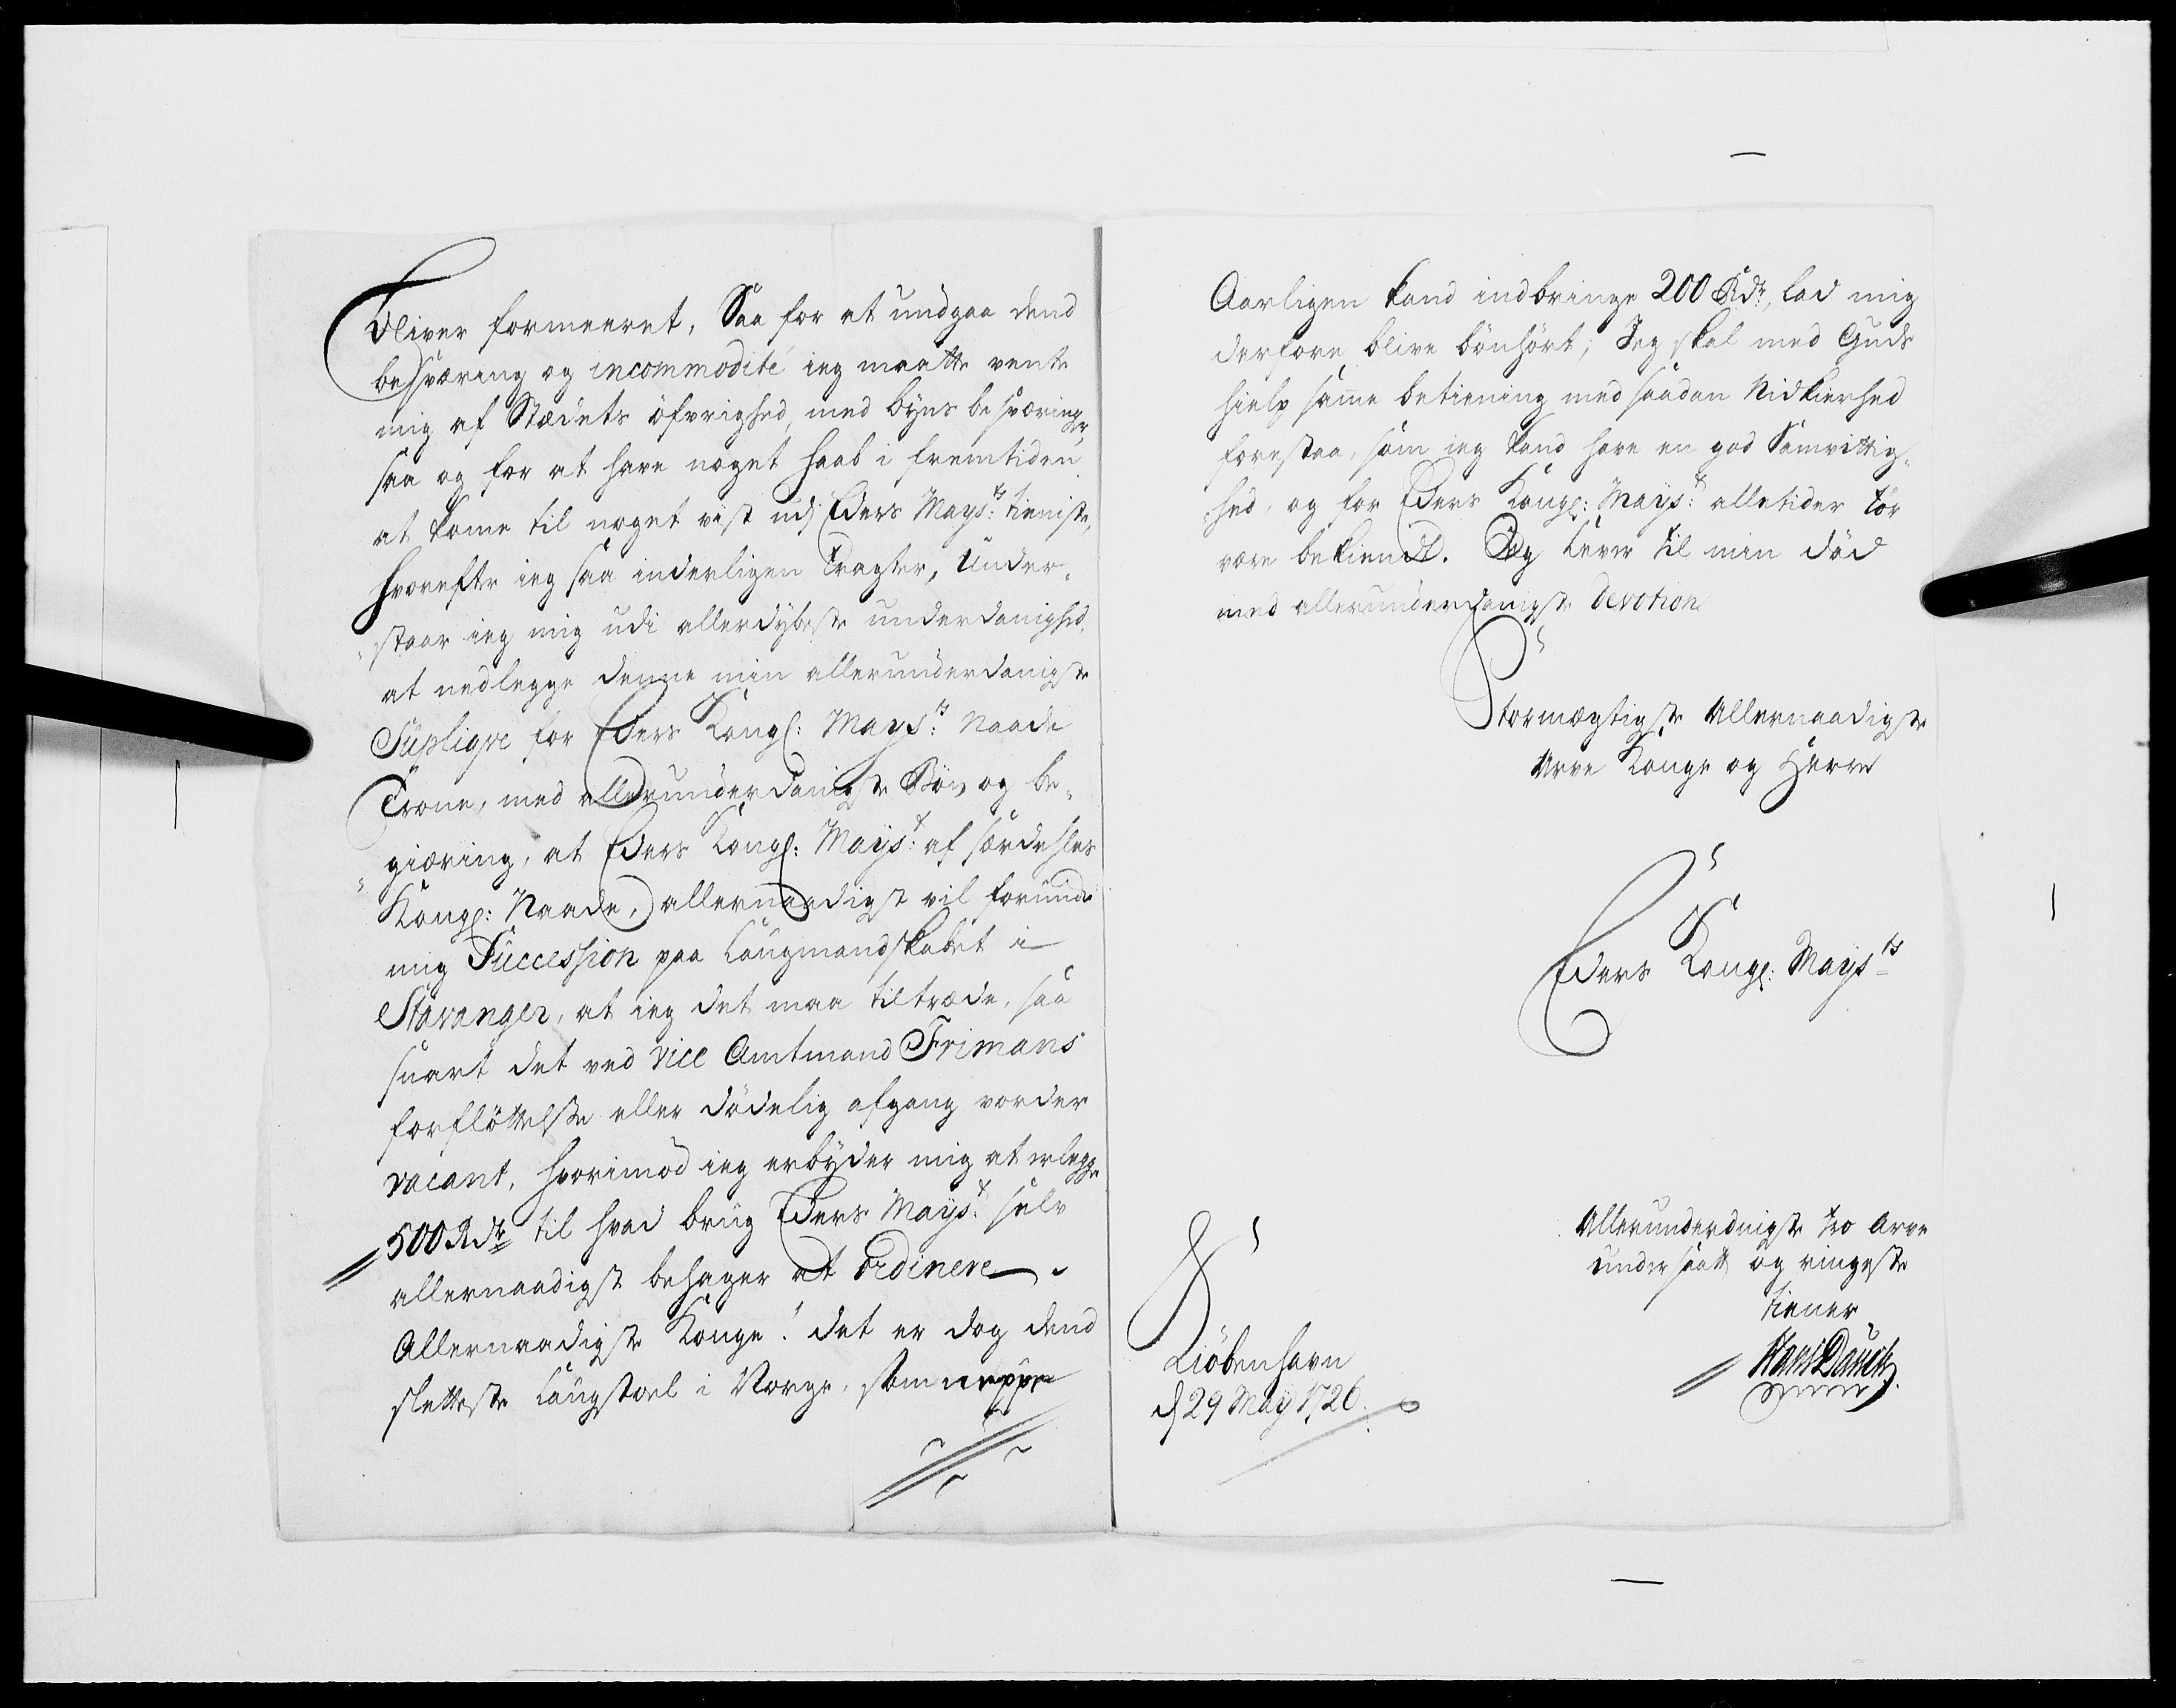 bliver formeeret, Saa for at undgaa dend
besværing og incommodité ieg maatte vente
mig af Stædets öfvrighed, med byens besværinger,
saa og for at have noget haab i fremtiden
at kome til noget vist udj Eders Mays:ts tieniste,
hvorefter ieg saa inderligen Tragter, Under-
staar ieg mig udi allerdybeste underdanighed,
at nedlegge denne min allerunderdanigste
Supliqve for Eders Kongl: Mays:ts Naade
Trone, med allerunderdanigste Bön og be-
giæring, at Eders Kongl: Mays:t af særdehles
Kongl: Naade, allernaadigst vil forunde
mig Succession paa Laugmandskabet i
Stavanger, at ieg det maa tiltræde, saa
snart det ved vice Amtmand Frimans
forflöttelse eller dödelig afgang vorder
vacant, hvorimod ieg erbyder mig at erlegge
500 Rdr til hvad brug Eders Mays:t selv
allernaadigst behager at ordinere
Allernaadigste Konge! det er dog dend
sletteste Laugstoel i Norge, som neppe
Aarligen kand indbringe 200 Rdr, lad mig
derfore blive bönhört; Jeg skal med Guds
hielp samme betiening med saadan Nidkierhed
forestaa, som ieg kand have en god Samvittig-
hed, og for Eders Kongl: Mays:t alletider tör
være bekiendt. Jeg lever til min död
med allerunderdanigste Devotion
Stormægtigste Allernaadigste
Arve Konge og Herre
Eders Kongl: Mays:ts
Allerunderdnigste tro Arve
undersaatt og ringeste
tiener
Kiöbenhavn
d 29 Maÿ 1726.